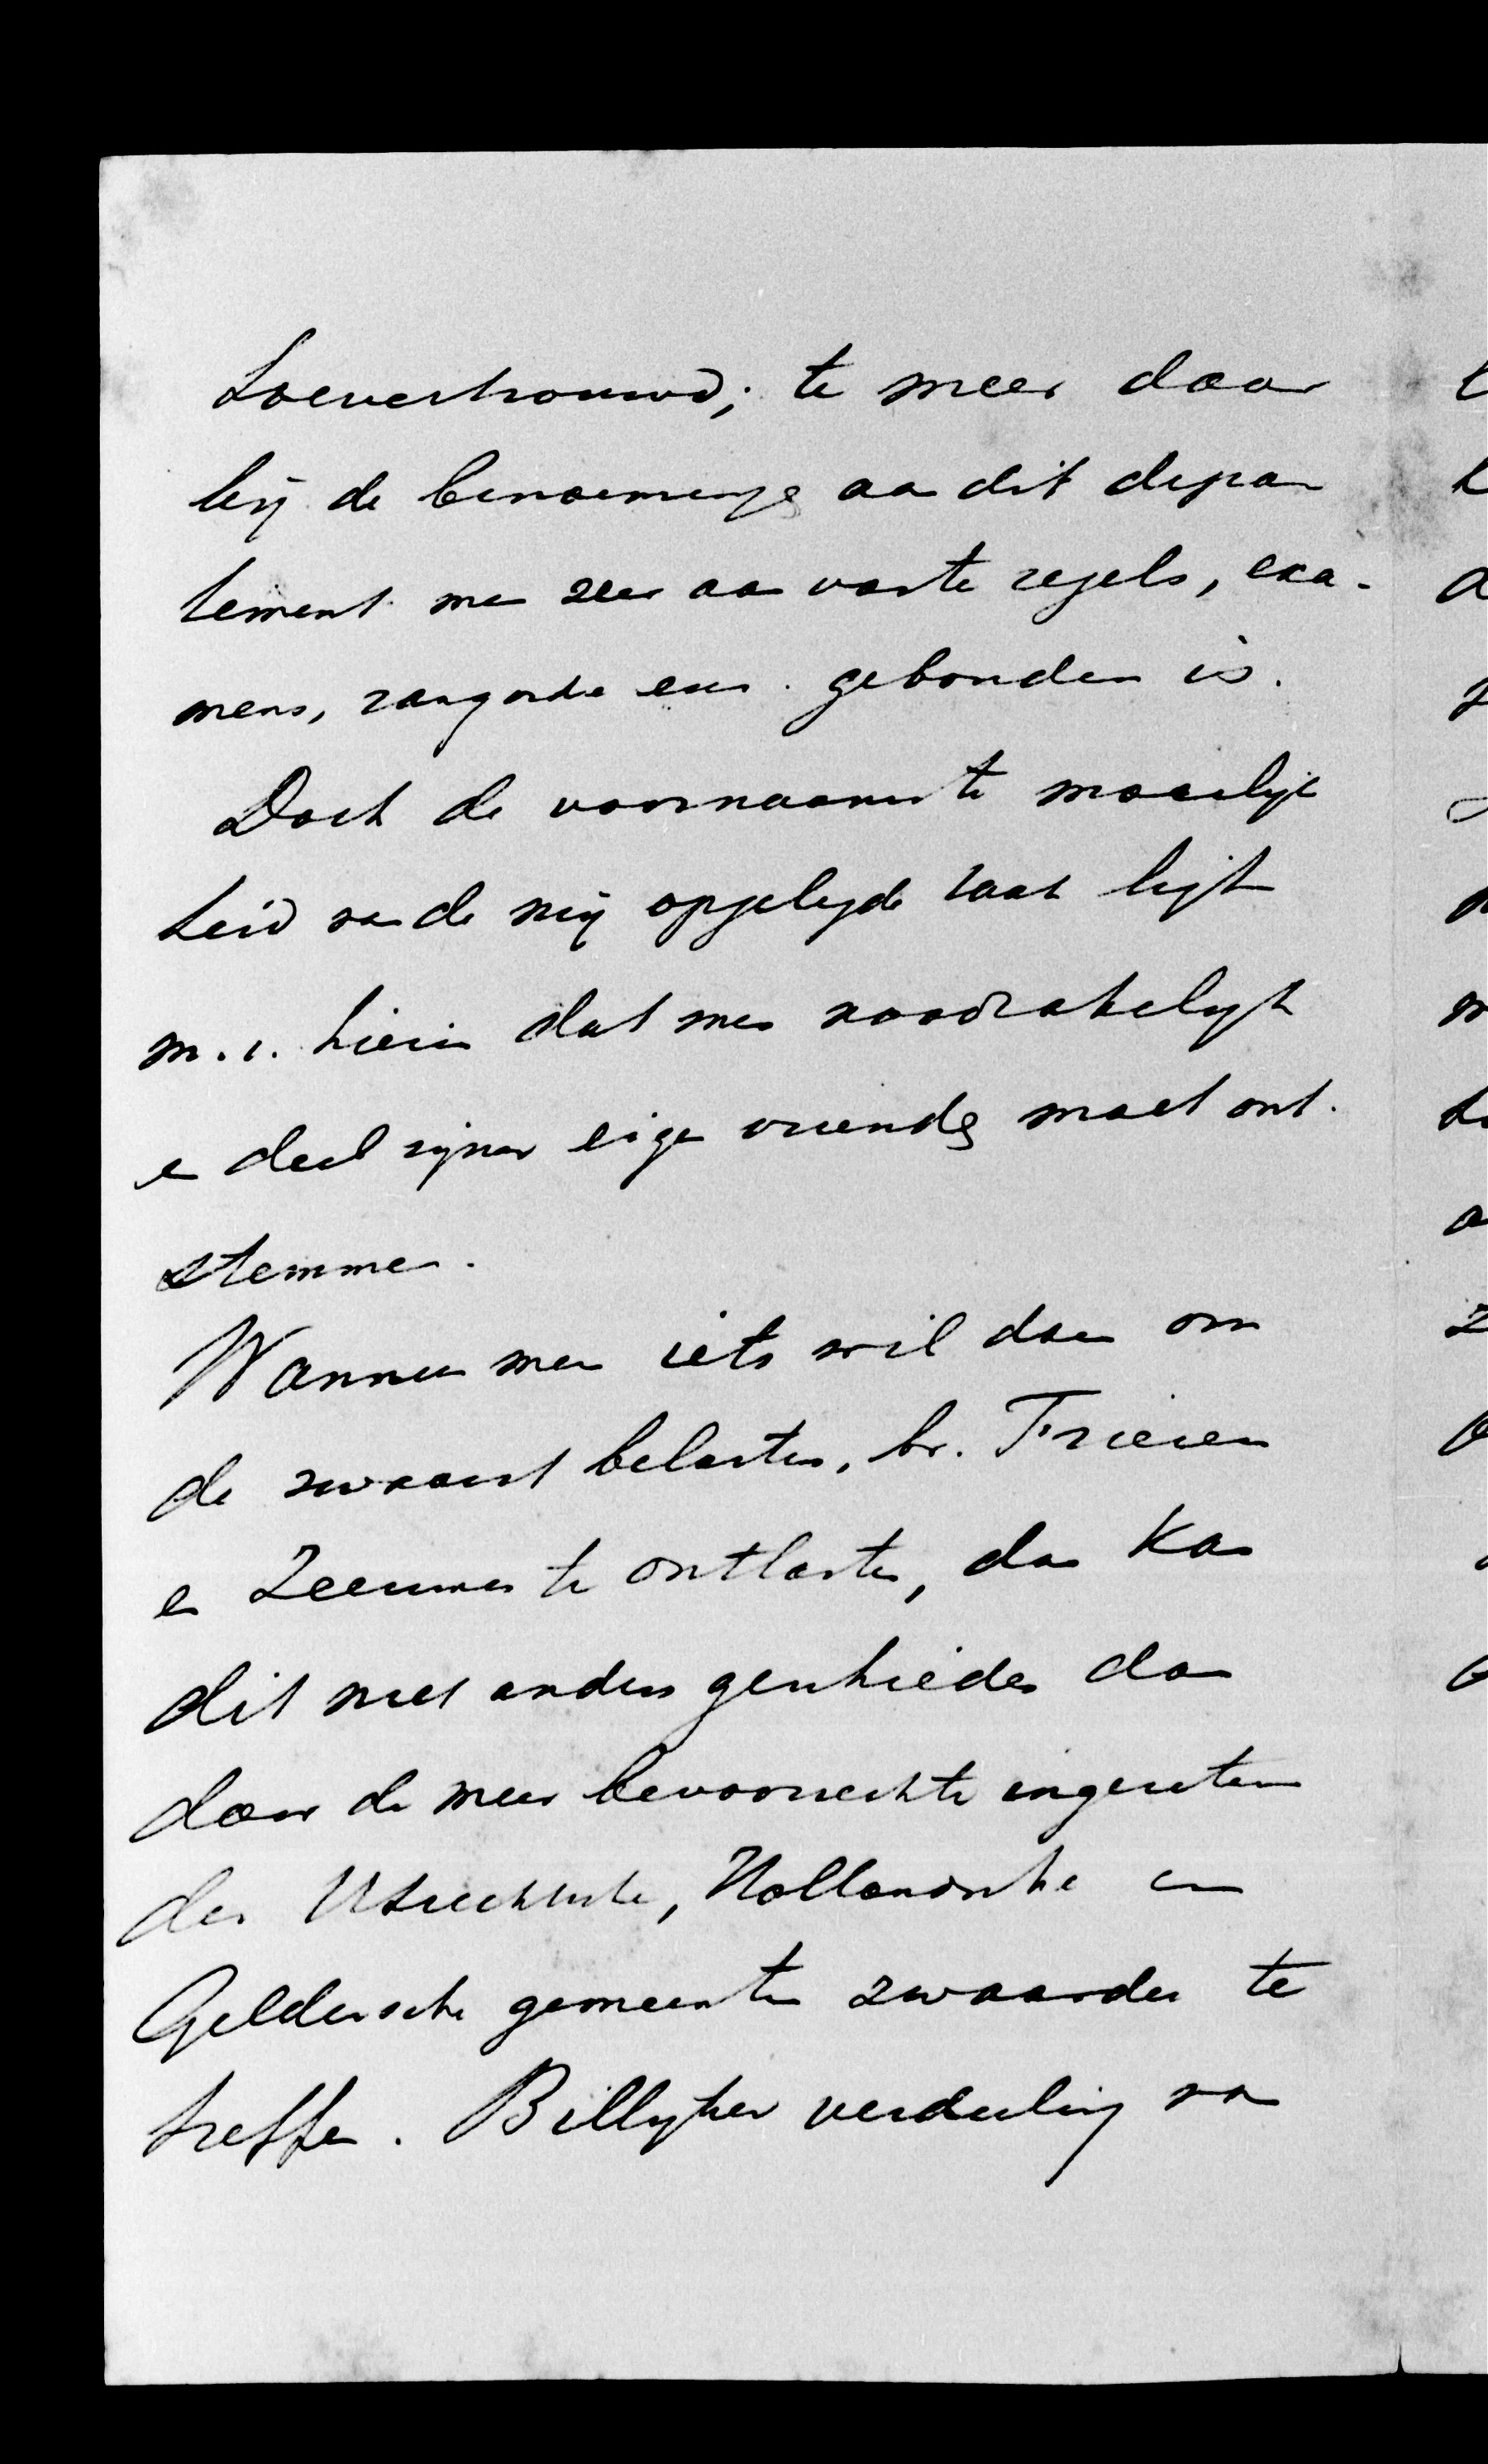 toevertrouwd; te meer daar
bij de benoeminge aan dit depar
tement men zeer aan vaste regels, exa-
mens, rangorde enz. gebonden is.
Doch de voornaamste moeilijk
heid van de mij opgelegde taak ligt
m.i. hierin dat men noodzakelijk
en deel zijner eigen vrienden moet ont-
stemmen.
Wanneer men iets wil doen om
de zwaarst belasten, bv. Friezen
en Zeeuwen te ontlasten, dan kan
dit niet anders geschieden dan
door de meer bevoorrechte ingezetenen
der Utrechtsche, Hollandsche en
Geldersche gemeenten zwaarder te
treffen. Billijker verdeeling van